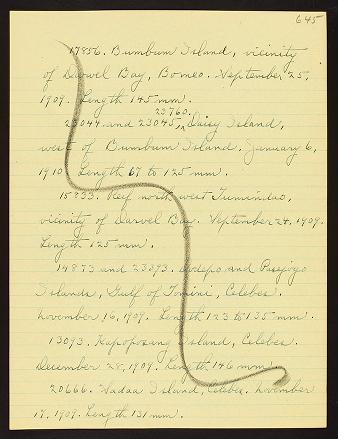 645
17856. Bumbum Island, vicinity
of Darvel Bay, Borneo. September 25,
1909. Length 145 mm.
23760.
23044 and 23045, Daisy Island,
west of Bumbum Island, January 6,
1910 Length 67 to 125 mm.
15233. Reef north west Tumindao,
vicinity of Darvel Bay. September 24, 1909.
Length 125 mm.
14873 and 23093. Dodepo and Pasejogo
Islands, Gulf of Tomini, Celebes.
November 16, 1909. Length 123 to 135 mm.
13093. Kapoposang Island, Celebes.
December 28, 1909. Length 146 mm.
20666. Island, Celebes. November
17, 1909. Length 131 mm.